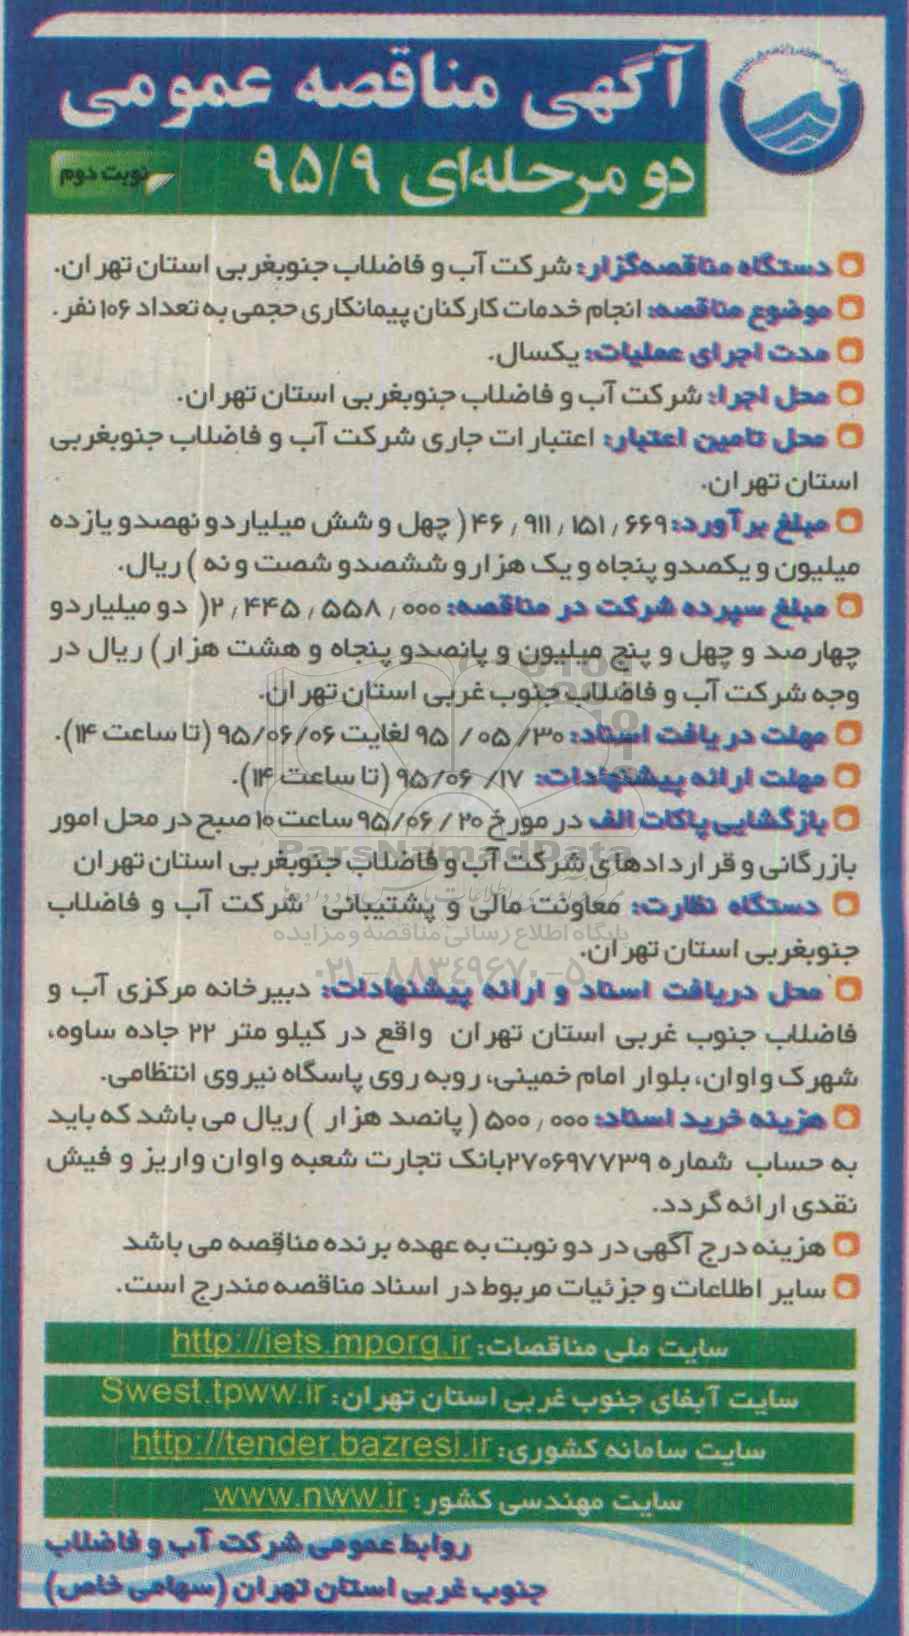 آگهی مناقصه عمومی
دو مرحله‌ای ۹۵/۹
نوبت دوم
دستگاه مناقصه‌گزار: شرکت آب و فاضلاب جنوبغربی استان تهران.
موضوع مناقصه: انجام خدمات کارکنان پیمانکاری حجمی به تعداد ۱۰۶ نفر.
مدت اجرای عملیات: یکسال.
محل اجرا: شرکت آب و فاضلاب جنوبغربی استان تهران.
محل تامین اعتبار: اعتبارات جاری شرکت آب و فاضلاب جنوبغربی
استان تهران.
مبلغ برآورد: ۴۶,۹۱۱,۱۵۱,۶۶۹ ( چهل و شش میلیارد و نهصد و یازده
میلیون و یکصد و پنجاه و یک هزار و ششصد و شصت و نه ) ریال.
مبلغ سپرده شرکت در مناقصه: ۲,۴۴۵,۵۵۸,۰۰۰( دو میلیارد و
چهارصد و چهل و پنج میلیون و پانصد و پنجاه و هشت هزار) ریال در
وجه شرکت آب و فاضلاب جنوب غربی استان تهران.
مهلت دریافت اسناد: ۹۵/۰۵/۳۰ لغایت ۹۵/۰۶/۰۶ (تا ساعت ۱۴).
مهلت ارائه پیشنهادات: ۹۵/۰۶/۱۷ (تا ساعت ۱۴).
بازگشایی پاکات الف در مورخ ۹۵/۰۶/۲۰ ساعت ۱۰ صبح در محل امور
بازرگانی و قراردادهای شرکت آب و فاضلاب جنوبغربی استان تهران
ParsNamadData
دستگاه نظارت: معاونت مالی و پشتیبانی شرکت آب و فاضلاب
پایگاه اطلاع رسانی مناقصه و مزایده
جنوبغربی استان تهران.
۰۲۱-۸۸۳۴۹۶۷۰-۵
محل دریافت اسناد و ارائه پیشنهادات: دبیرخانه مرکزی آب و
فاضلاب جنوب غربی استان تهران واقع در کیلو متر ۲۲ جاده ساوه،
شهرک واوان، بلوار امام خمینی، روبه روی پاسگاه نیروی انتظامی.
هزینه خرید اسناد: ۵۰۰,۰۰۰ ( پانصد هزار ) ریال می باشد که باید
به حساب شماره ۲۷۰۶۹۷۷۳۹بانک تجارت شعبه واوان واریز و فیش
نقدی ارائه گردد.
هزینه درج آگهی در دو نوبت به عهده برنده مناقصه می باشد
سایر اطلاعات و جزئیات مربوط در اسناد مناقصه مندرج است.
سایت ملی مناقصات: http://iets.mporg.ir
سایت آبفای جنوب غربی استان تهران: Swest.tpww.ir
سایت سامانه کشوری: http://tender.bazresi.ir
سایت مهندسی کشور: www.nww.ir
روابط عمومی شرکت آب و فاضلاب
جنوب غربی استان تهران (سهامی خاص)